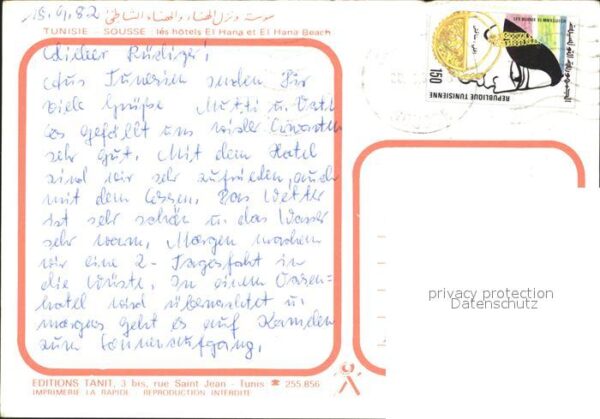 15.9.82 سوسة ونزل الهناء والهناء الشاطئ
TUNISIE - SOUSSE les hôtels El Hana et El Hana Beach
Lieber Rüdiger!
Aus Tunesien senden Dir
viele Grüße Mutti u. Vati
Es gefällt uns wieder
sehr gut. Mit dem Hotel
sind wir sehr zufrieden, auch
mit dem Essen. Das Wetter
ist sehr schön u. das Wasser
sehr warm. Morgen machen
wir eine 2-Tagesfahrt in
die Wüste. In einem Oasen-
hotel wird übernachtet u.
morgens geht es auf Kamelen
zum Sonnenaufgang.
EDITIONS TANIT, 3 bis, rue Saint Jean - Tunis ☎ 255.856
IMPRIMERIE LA RAPIDE - REPRODUCTION INTERDITE
150
REPUBLIQUE TUNISIENNE
privacy protection
Datenschutz